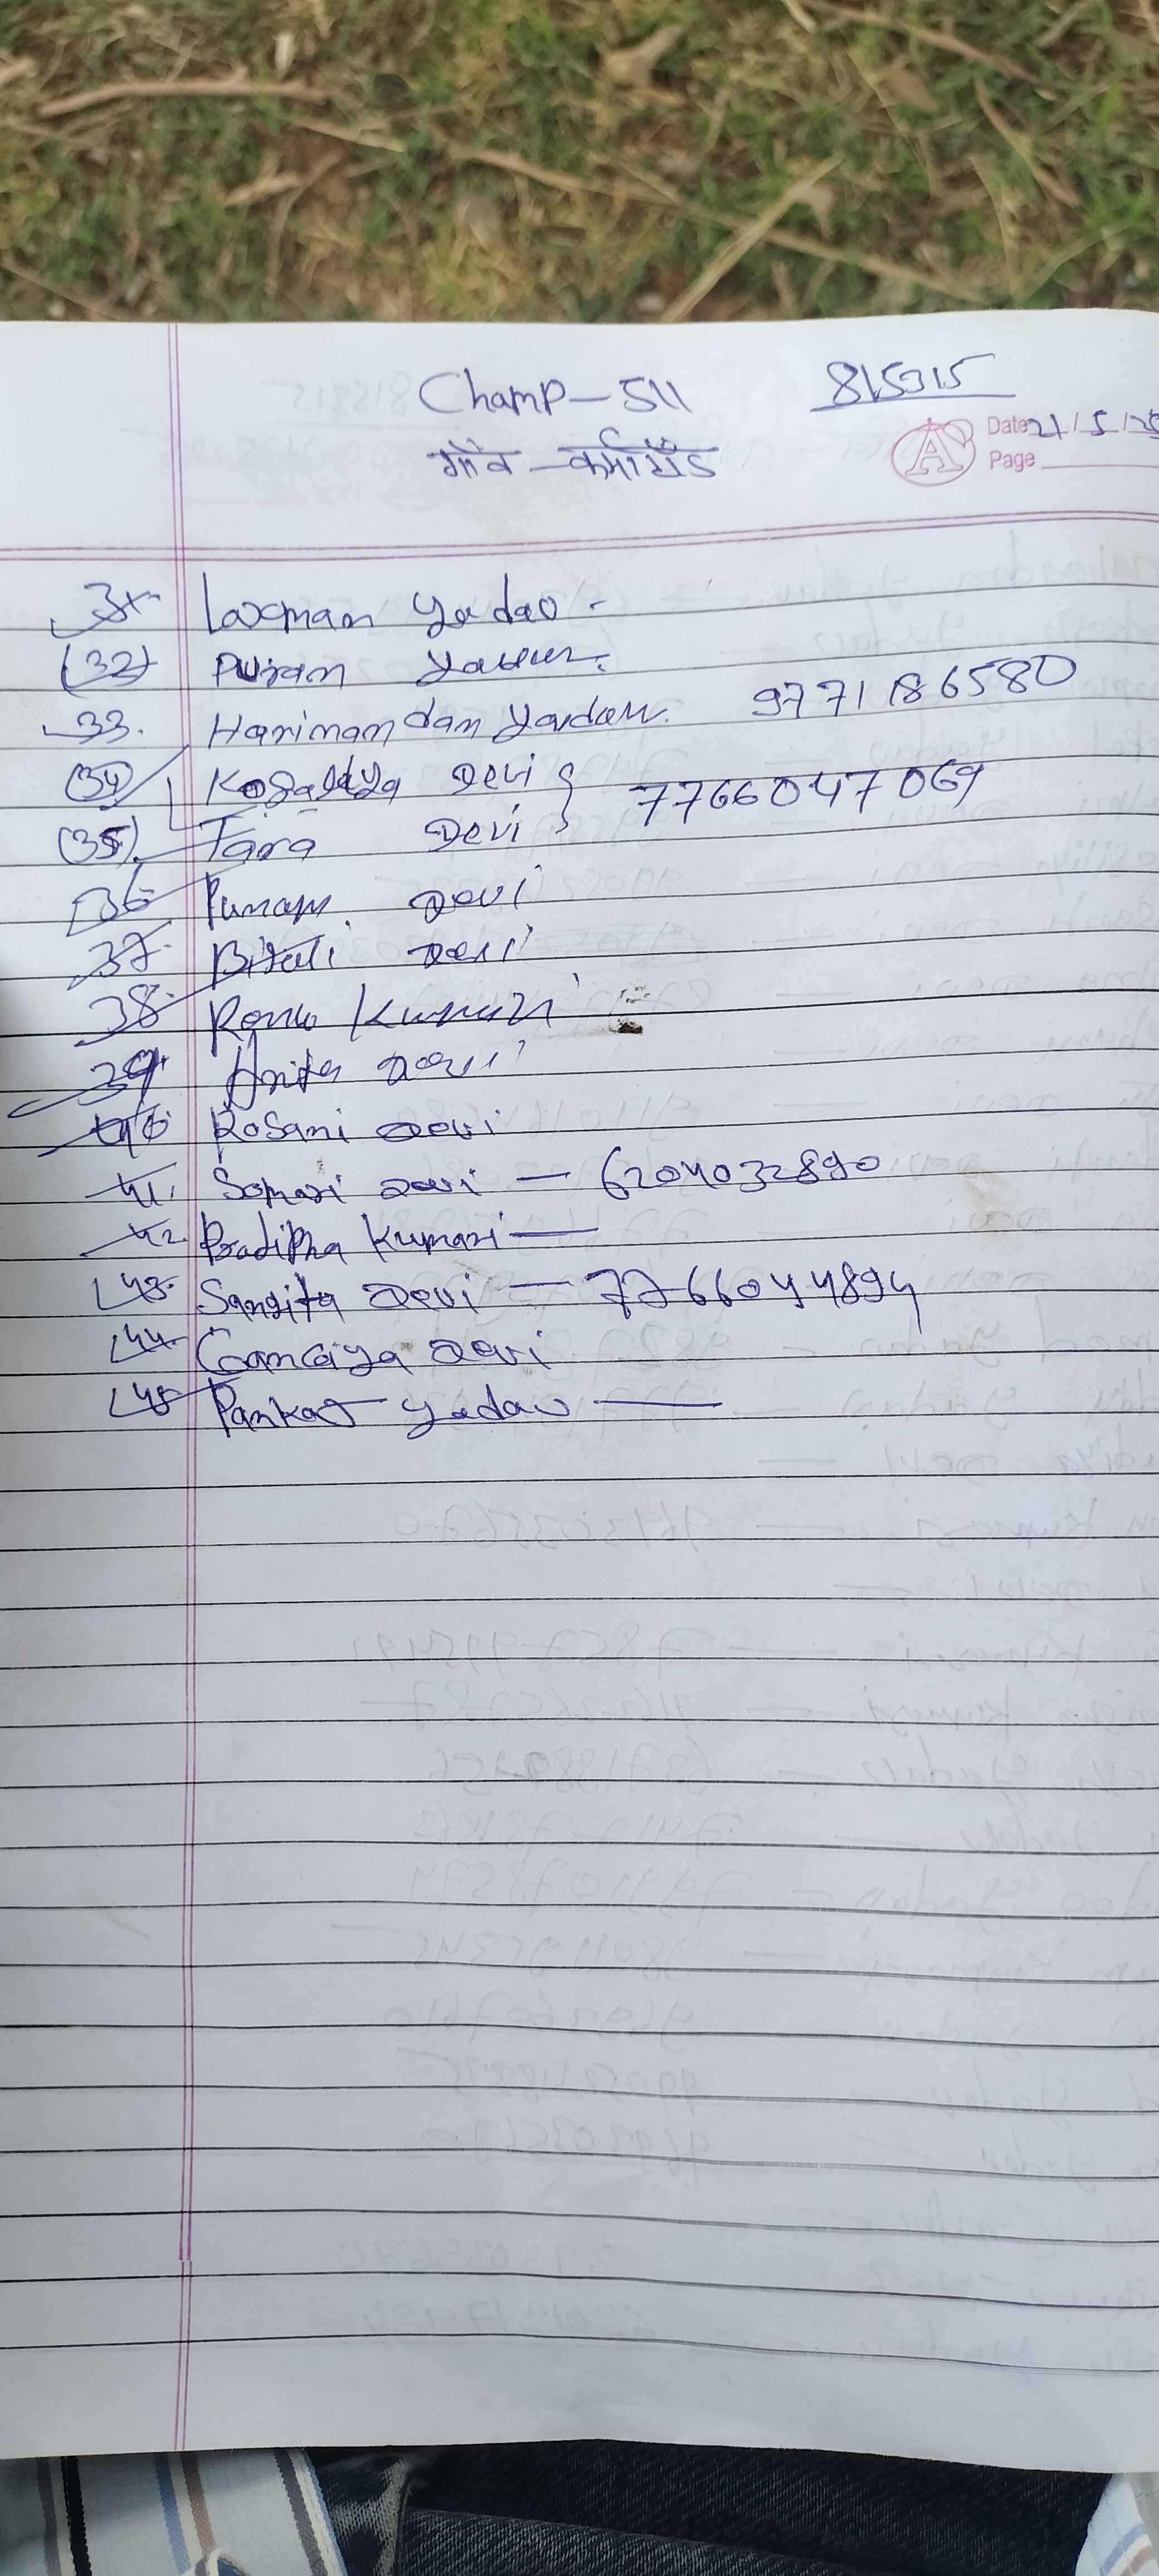 Champ-511 815315
गाँव - कर्माटाँड
Date 21/5/25
Page
31. Laxman Yadav -
(32) Puran Yadav.
33. Harinandan Yadav. 9771186580
(34) Kosalya Devi } 7766047069
(35). Tara Devi
36. Punam Devi
37. Bijali Devi
38. Renu Kumari
39. Anita Devi
40. Rosani Devi
41. Somari Devi - 6204032890
42. Kumari -
43. Sangita Devi - 7766044894
44. Devi
45. Pankaj Yadav -